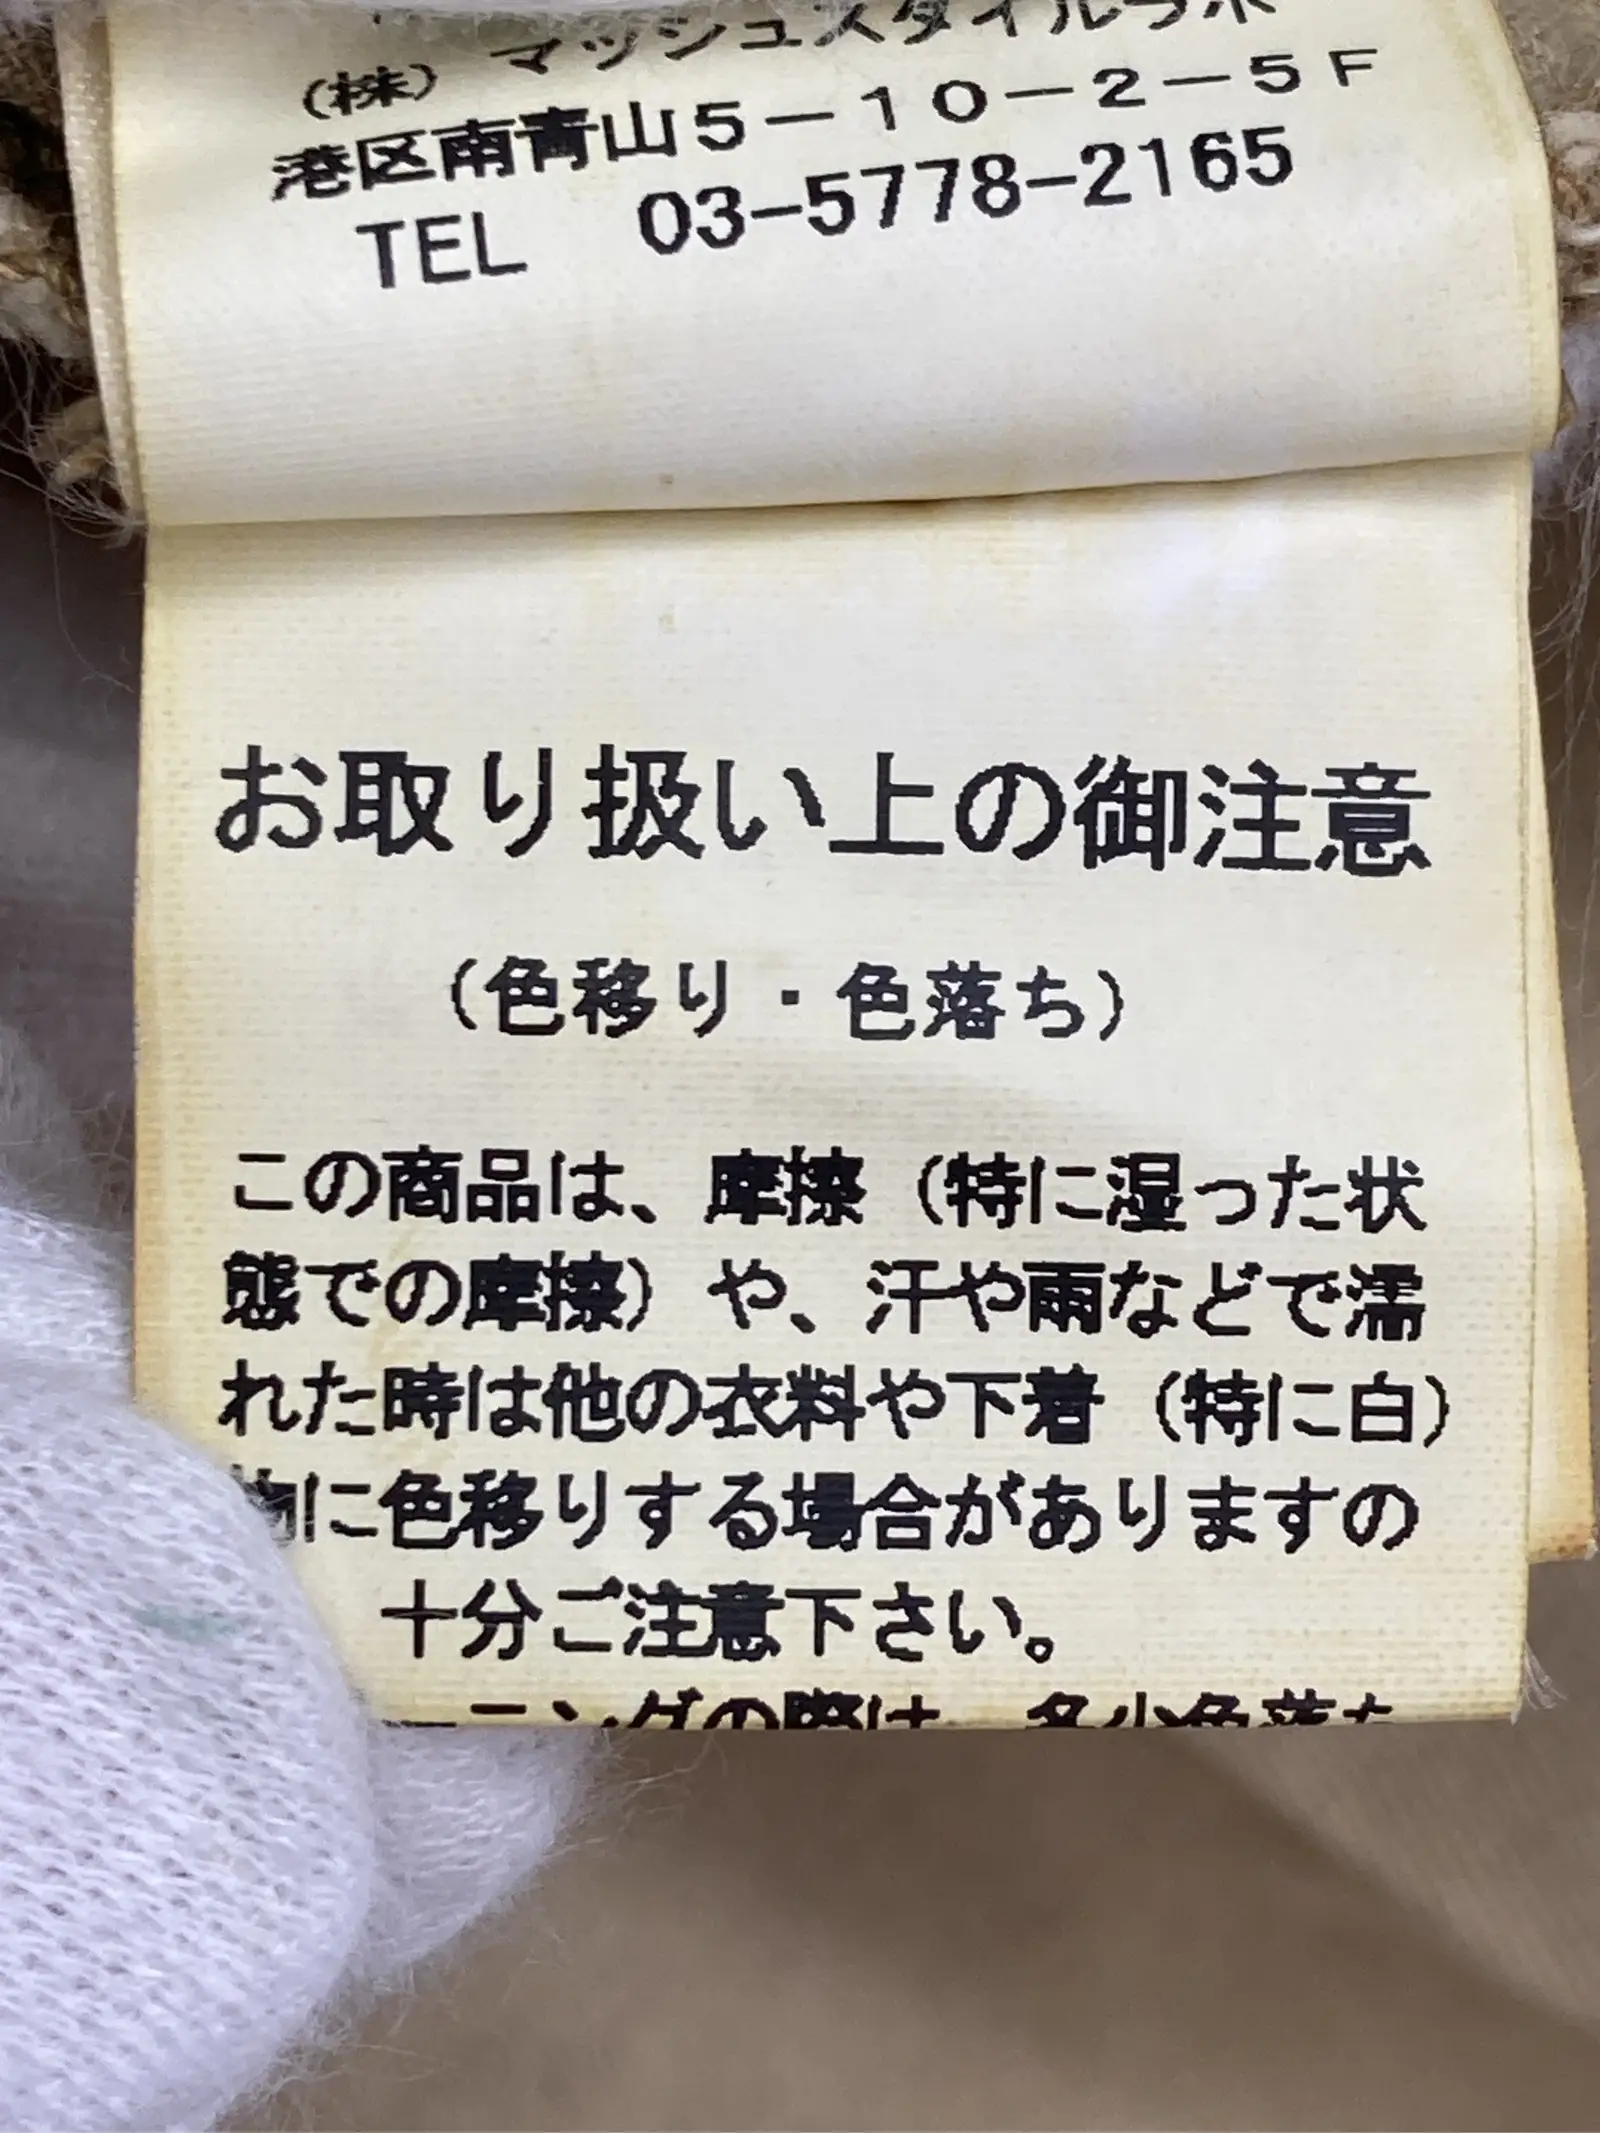 (株) マッシュスタイルラボ
港区南青山5-10-2-5F
TEL 03-5778-2165
お取り扱い上の御注意
(色移り・色落ち)
この商品は、摩擦(特に湿った状
態での摩擦)や、汗や雨などで濡
れた時は他の衣料や下着(特に白)
物に色移りする場合がありますの
十分ご注意下さい。
ーニングの際は、多少色落ち